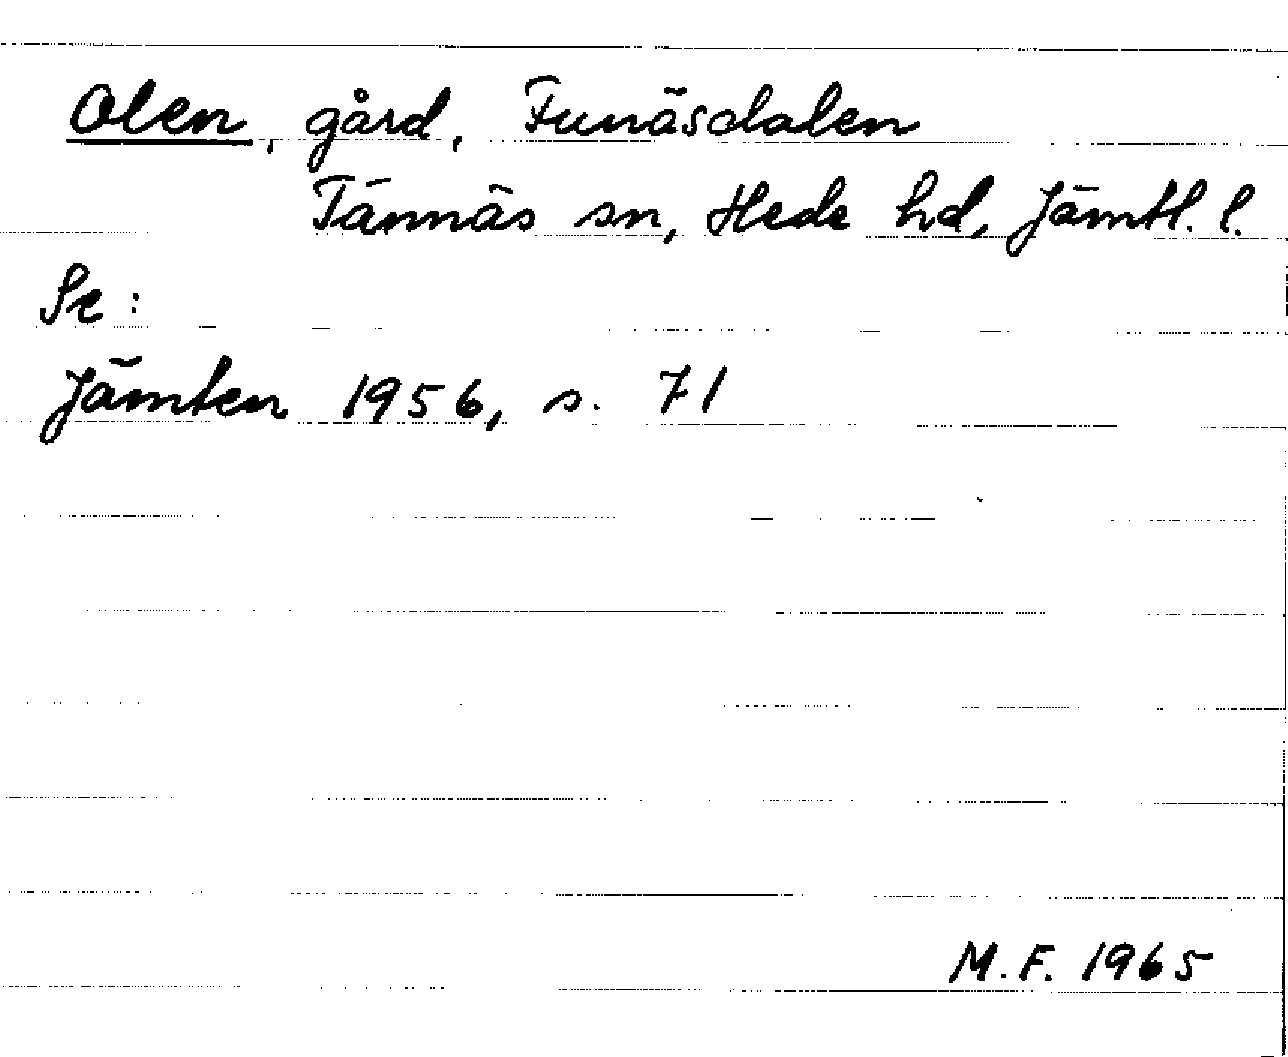 Olen, gård, Funäsdalen
Tännäs sn, Hede hd, Jämtl. l.
Se:
Jämten 1956, s. 71
M.F. 1965